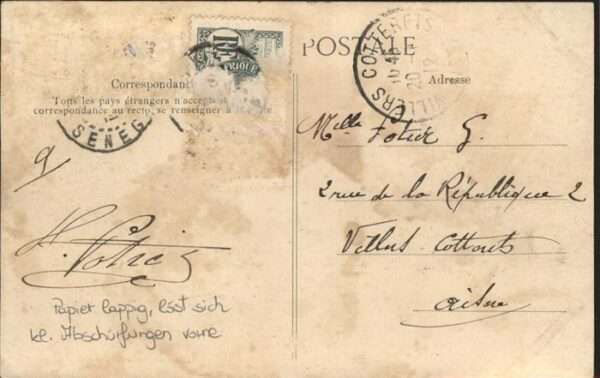 RF
POSTALE
Correspondan
Tous les pays étrangers n'accept
correspondance au recto, se renseigner à
SENEG
COTTERETS
VILLERS
Adresse
Melle Potier G.
2 rue de la République 2
Villers Cotterets
Aisne
Potier
Papier lappig, löst sich
kl. Abschürfungen vorne